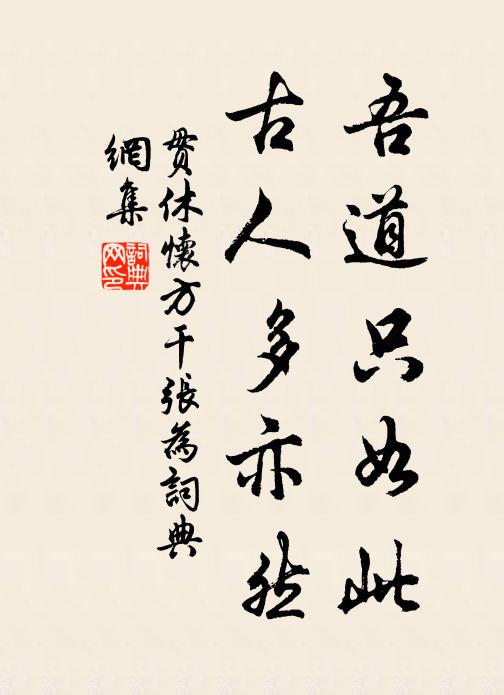 吾道只如此
古人多亦然
贯休懷方干張為詞典
網集
詞典
网印